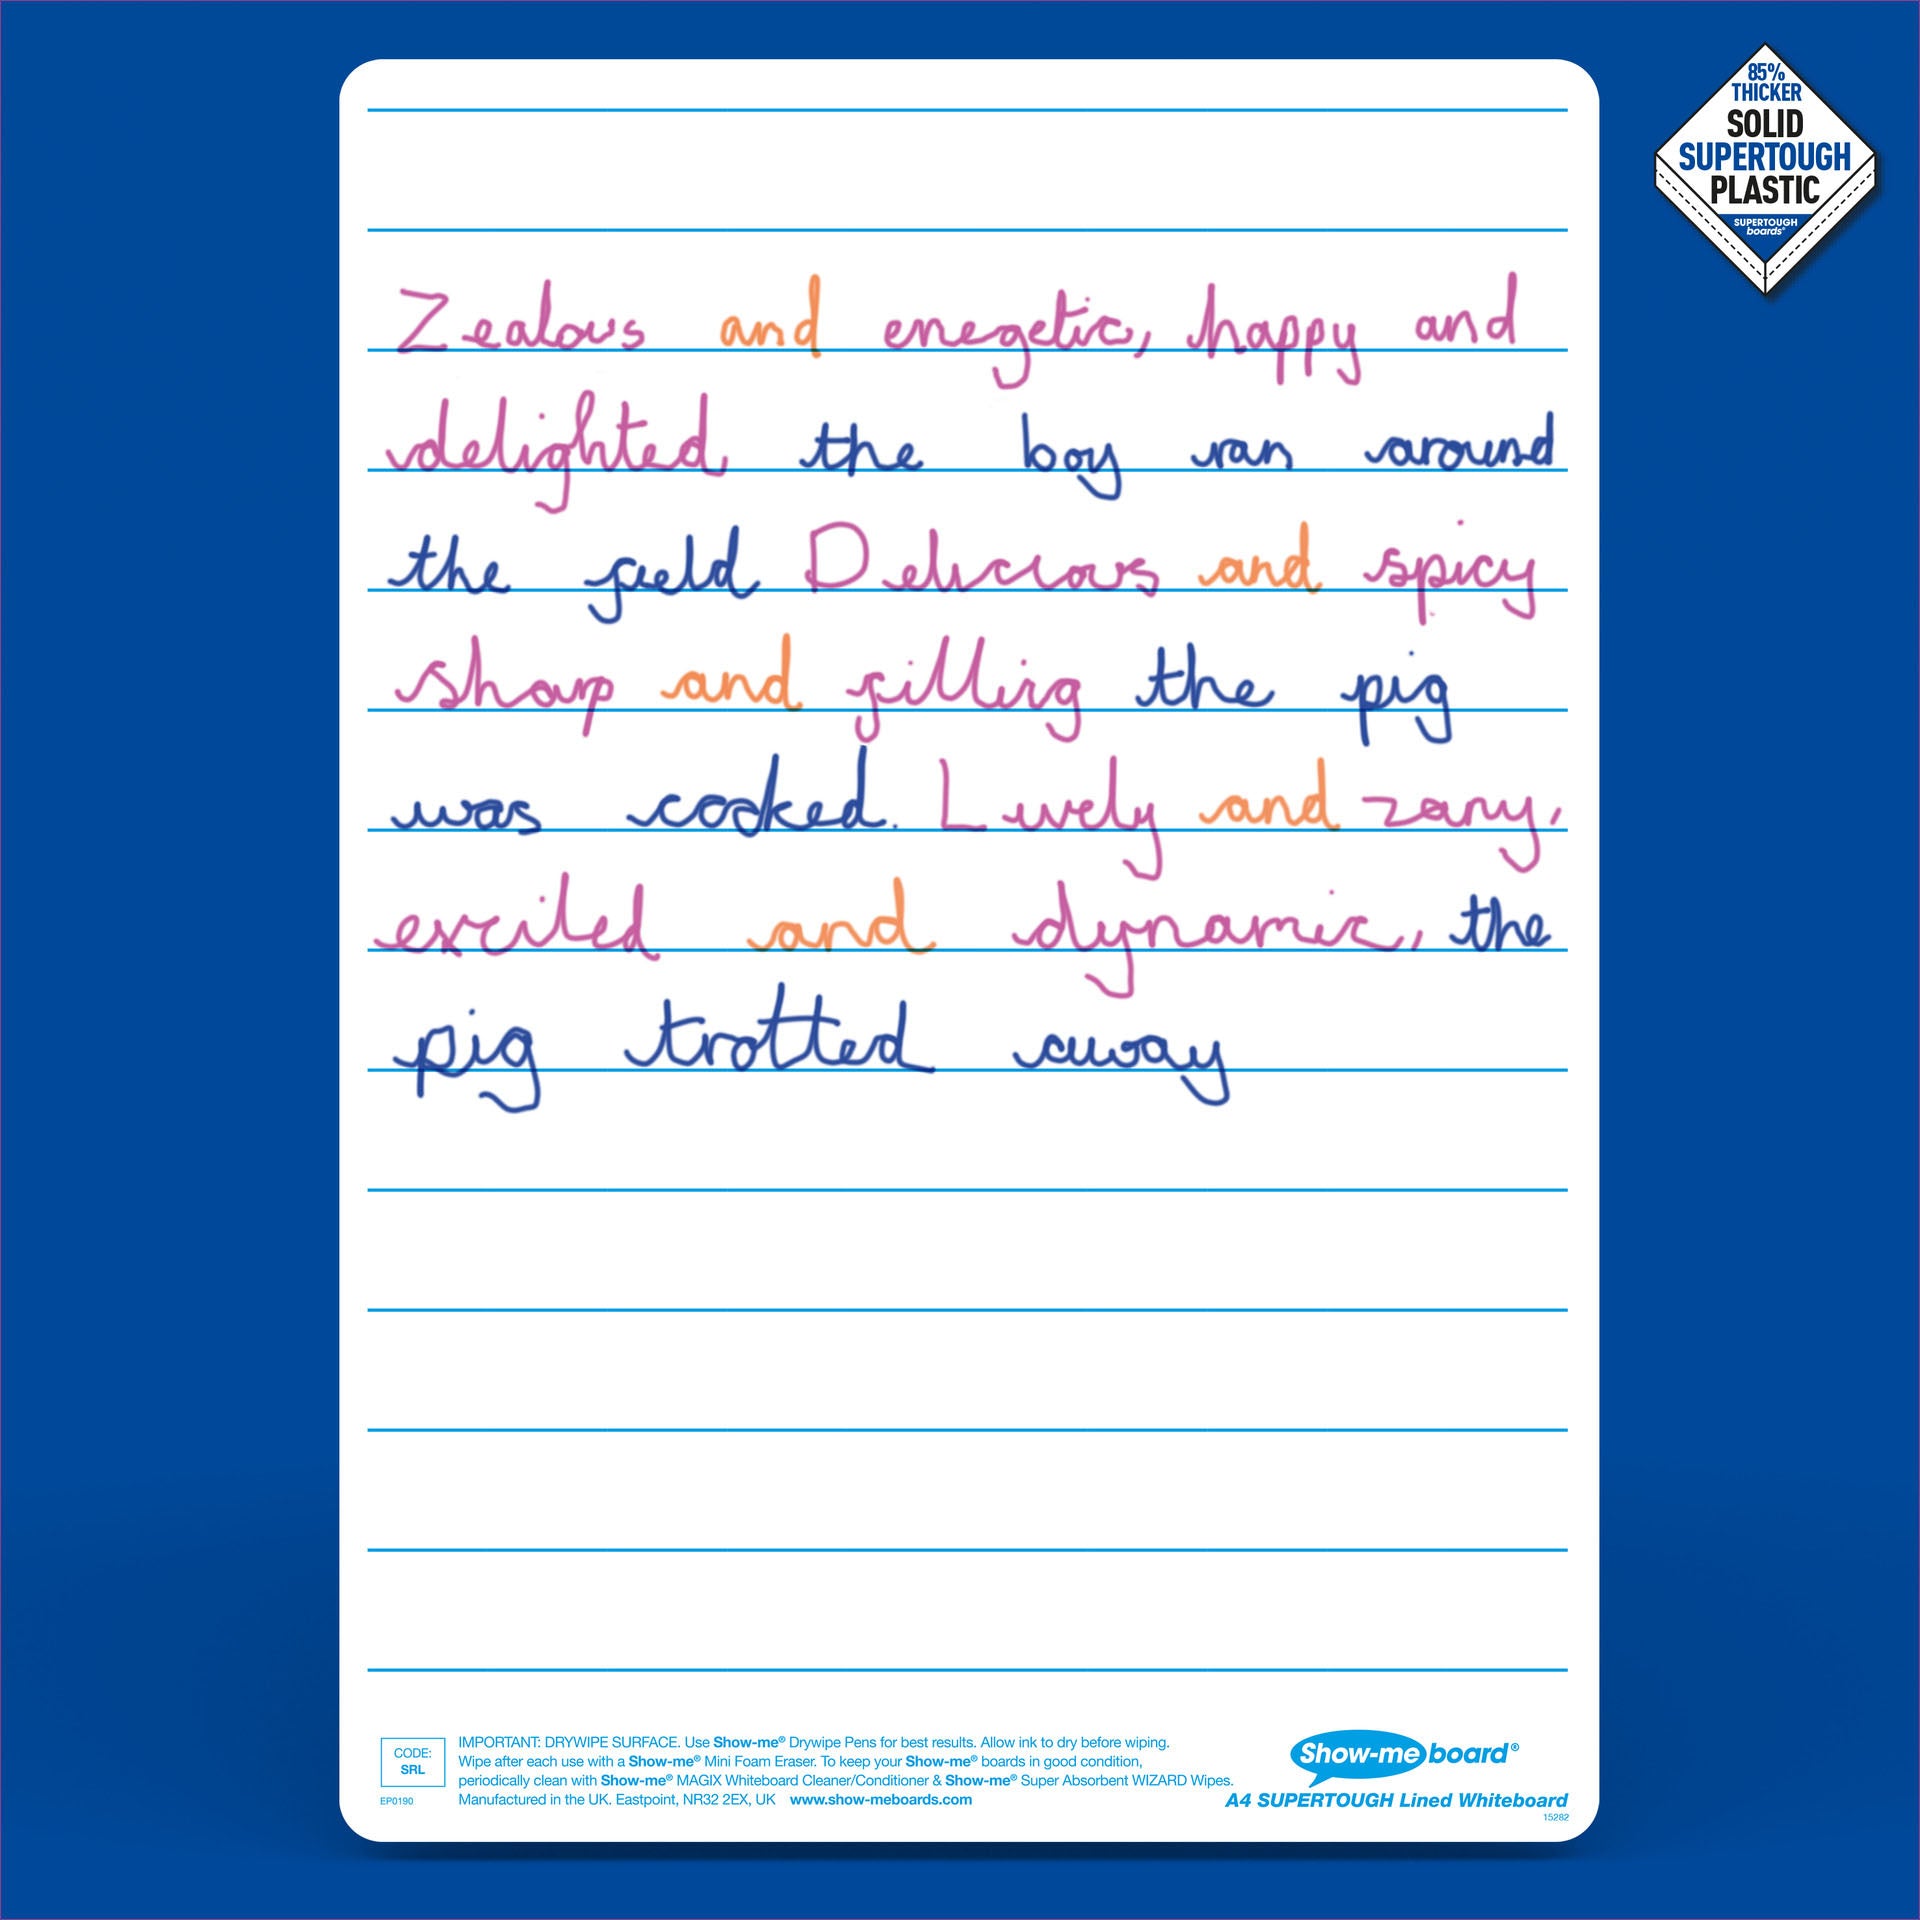 85%
THICKER
SOLID
SUPERTOUGH
PLASTIC
SUPERTOUGH
boards®
Zealous and energetic, happy and
delighted the boy ran around
the field Delicious and spicy
sharp and filling the pig
was cooked. Lively and zany,
excited and dynamic, the
pig trotted away
CODE:
SRL
EP0190
IMPORTANT: DRYWIPE SURFACE. Use Show-me® Drywipe Pens for best results. Allow ink to dry before wiping.
Wipe after each use with a Show-me® Mini Foam Eraser. To keep your Show-me® boards in good condition,
periodically clean with Show-me® MAGIX Whiteboard Cleaner/Conditioner & Show-me® Super Absorbent WIZARD Wipes.
Manufactured in the UK. Eastpoint, NR32 2EX, UK www.show-meboards.com
Show-me board®
A4 SUPERTOUGH Lined Whiteboard
15282